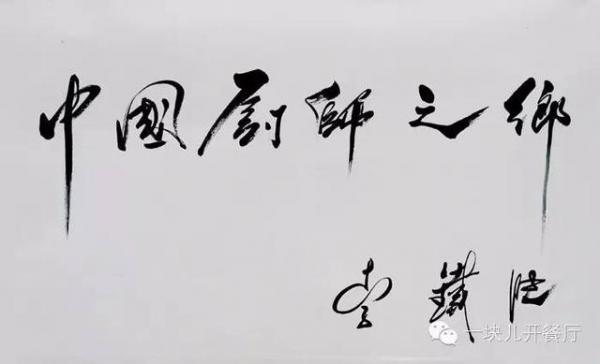 中國厨師之鄉
李鐵映
一块儿开餐厅